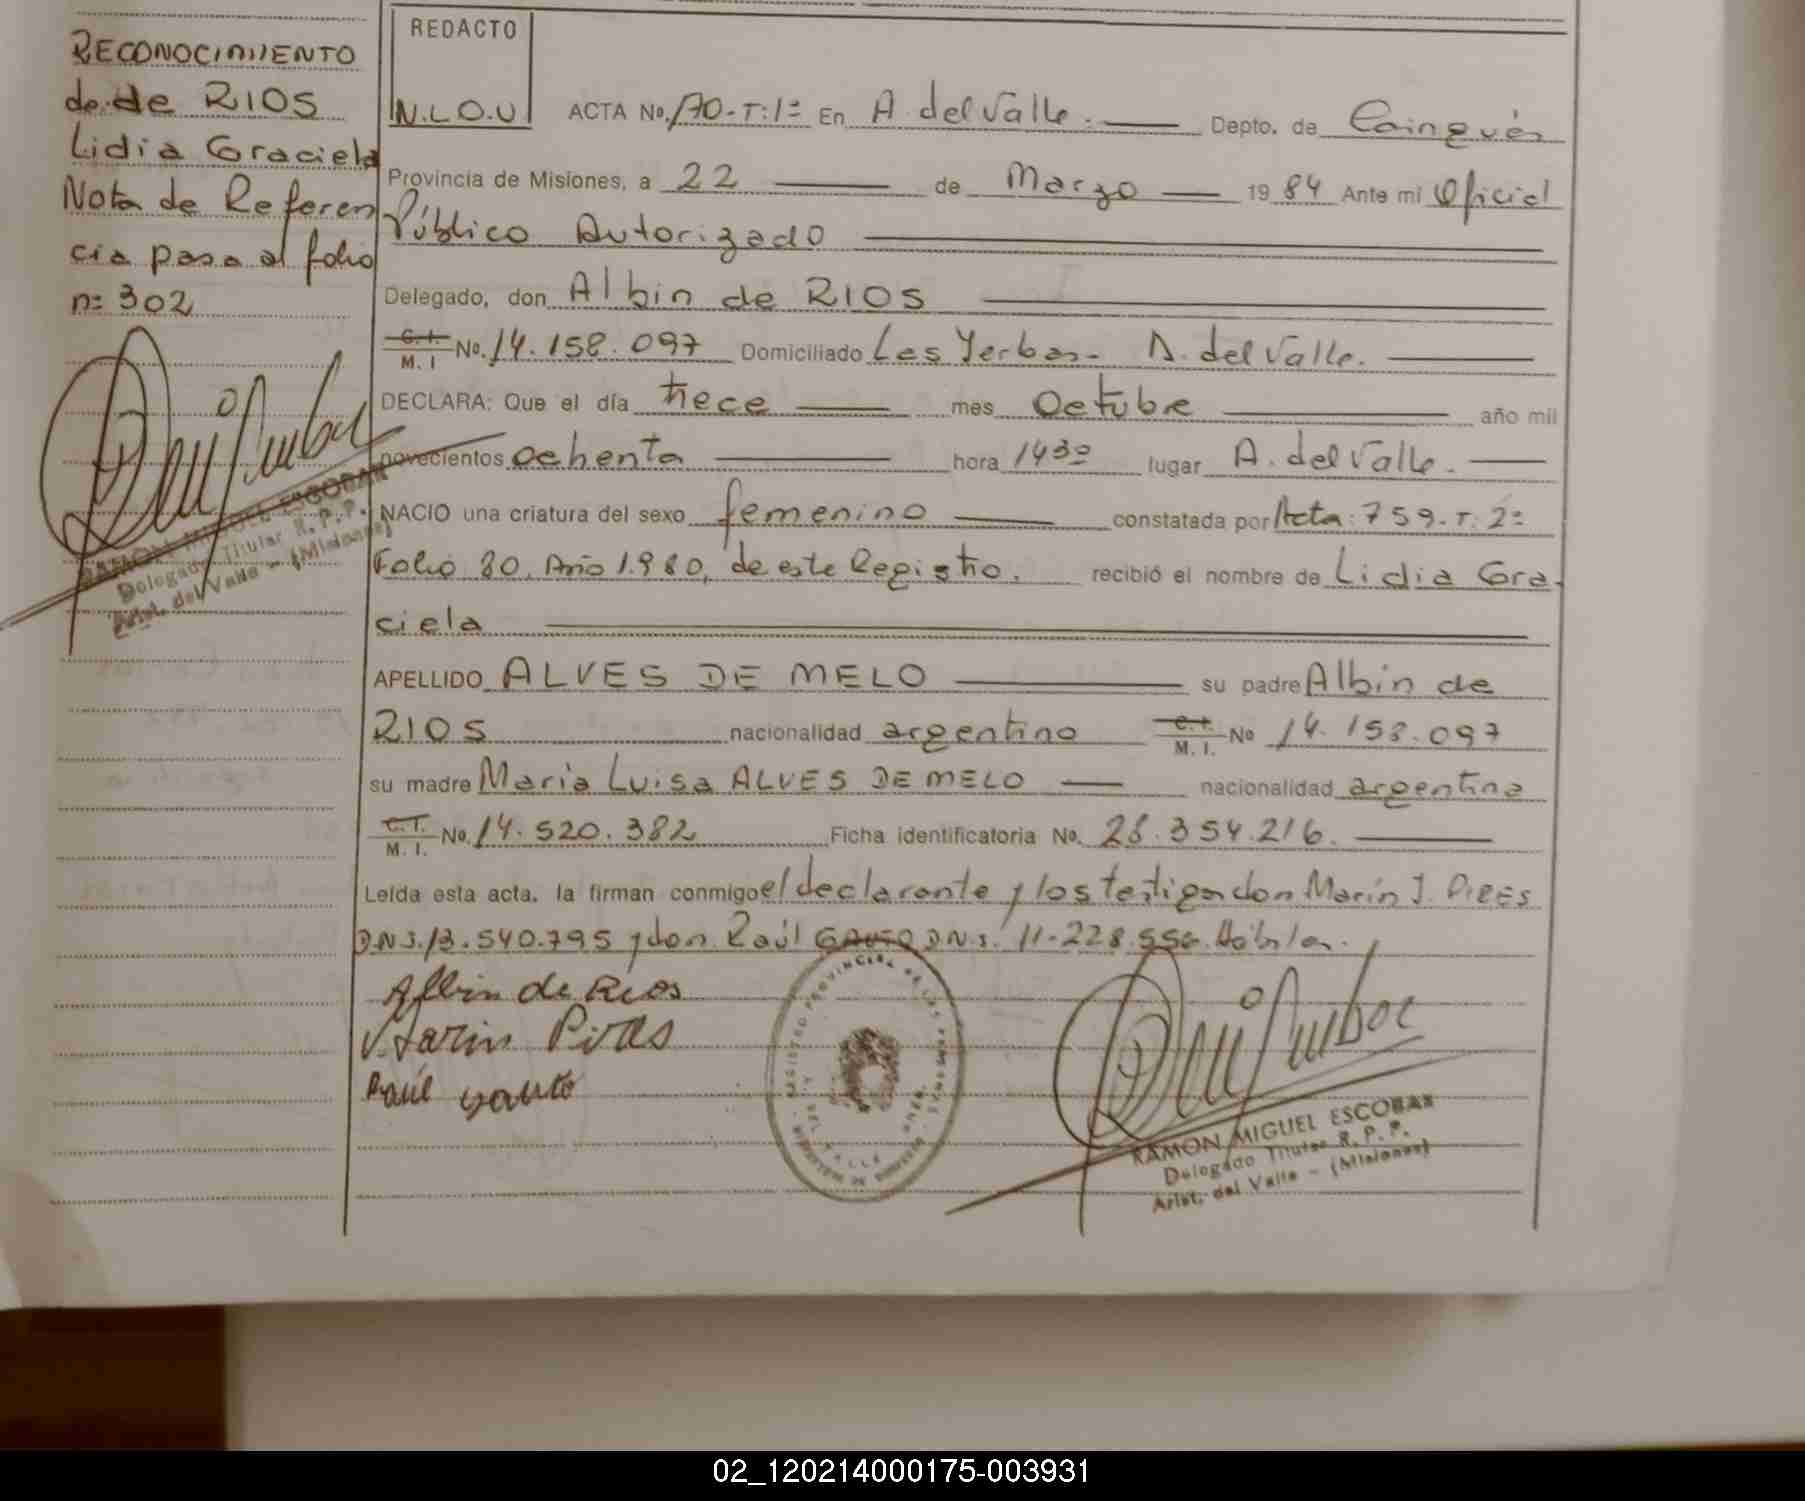 RECONOCIMIENTO
de de RIOS
Lidia Graciela
Nota de Referen
cia pasa al folio
n= 302
RAMON MIGUEL ESCOBAR
Delegado Titular R.P.P.
Arist. del Valle - (Misiones)
REDACTO
N.L.O.U
ACTA No. 170-T:1= En A. del Valle. Depto. de Cainguás
Provincia de Misiones, a 22 de Marzo 1984 Ante mi Oficial
Público Autorizado
Delegado, don Albin de RIOS
C.I. M. I No. 14.158.097 Domiciliado Las Yerbas- A. del Valle.
DECLARA: Que el día trece mes Octubre año mil
novecientos ochenta hora 1430 lugar A. del Valle.
NACIO una criatura del sexo femenino constatada por Acta: 759-T: 2=
Folio 80, Año 1.980, de este Registro. recibió el nombre de Lidia Gra-
ciela
APELLIDO ALVES DE MELO su padre Albin de
RIOS nacionalidad argentino C.I. M. I. No 14.158.097
su madre Maria Luisa ALVES DE MELO nacionalidad argentina
C.I. M. I. No. 14.520.382 Ficha identificatoria No. 28.354.216.
Leida esta acta, la firman conmigo el declarante y los testigos don Marin J. PIRES
D.N.I. 13.540.795 y don Raúl D.N.I. 11.228.556. Hábiles.
Albin de Rios
Marin Pires
Raúl
REGISTRO PROVINCIAL DE LAS PERSONAS
A. DEL VALLE
RAMON MIGUEL ESCOBAR
Delegado Titular R. P. P.
Arist. del Valle - (Misiones)
02_120214000175-003931